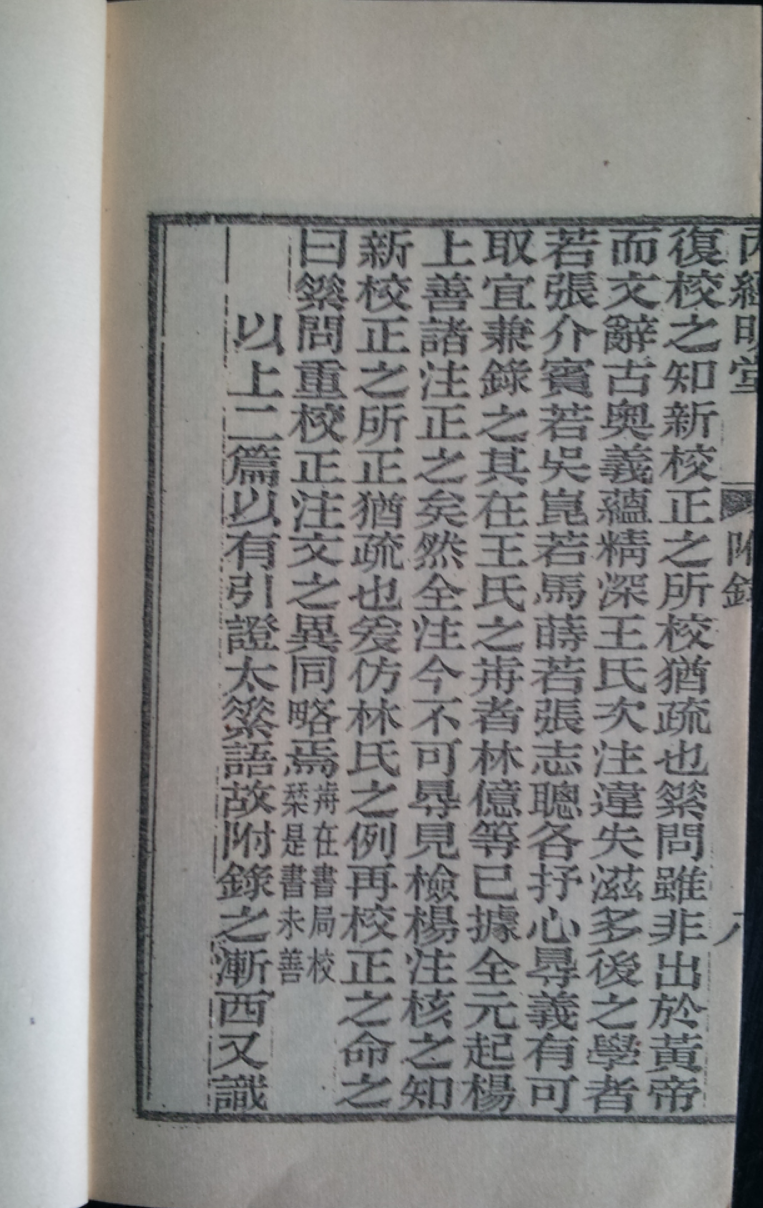 內經明堂 附錄 八
復校之知新校正之所校猶疏也䋤問雖非出於黃帝
而文辭古奧義蘊精深王氏次注違失滋多後之學者
若張介賓若吳崑若馬蒔若張志聰各抒心尋義有可
取宜兼錄之其在王氏之歬者林億等已據全元起楊
上善諸注正之矣然全注今不可尋見檢楊注核之知
新校正之所正猶疏也爰仿林氏之例再校正之命之
曰䋤問重校正注文之異同略焉歬在書局校
栞是書未善
以上二篇以有引證太䋤語故附錄之漸西又識